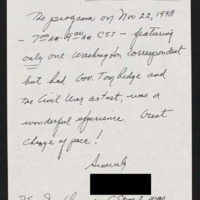 The program on Nov 22, 1998
- 7:00 AM - 9:00 AM CST - featuring
only one Washington correspondent
but had Gov. Tom Ridge and
the Civil War artist, was a
wonderful experience. Great
change of pace!
Sincerely